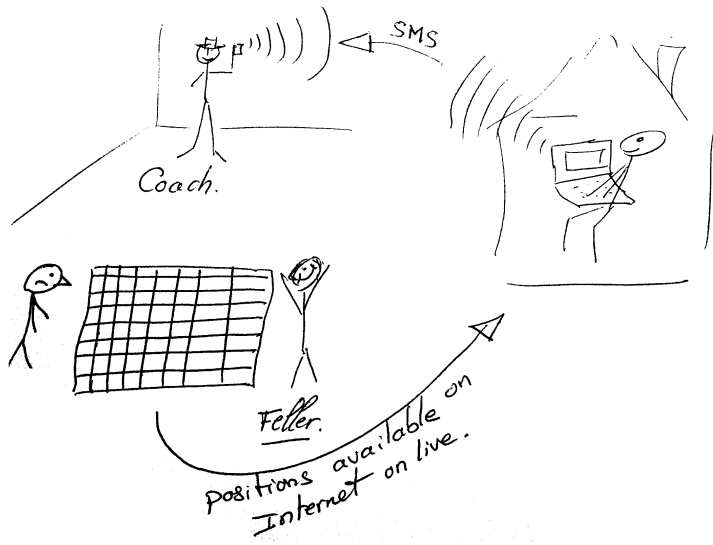 SMS
Coach.
Feller.
positions available on
Internet on live.